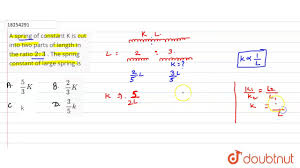 18254291
A spring of constant K is cut
into two parts of length in
the ratio 2:3. The spring
constant of large spring is
A. 5/3 K B. 2/3 K
C. k D. 3/5 k
K L.
L = 2 : 3.
K=?
2/5 L 3/5 L
K ∝ 1/L
doubtnut